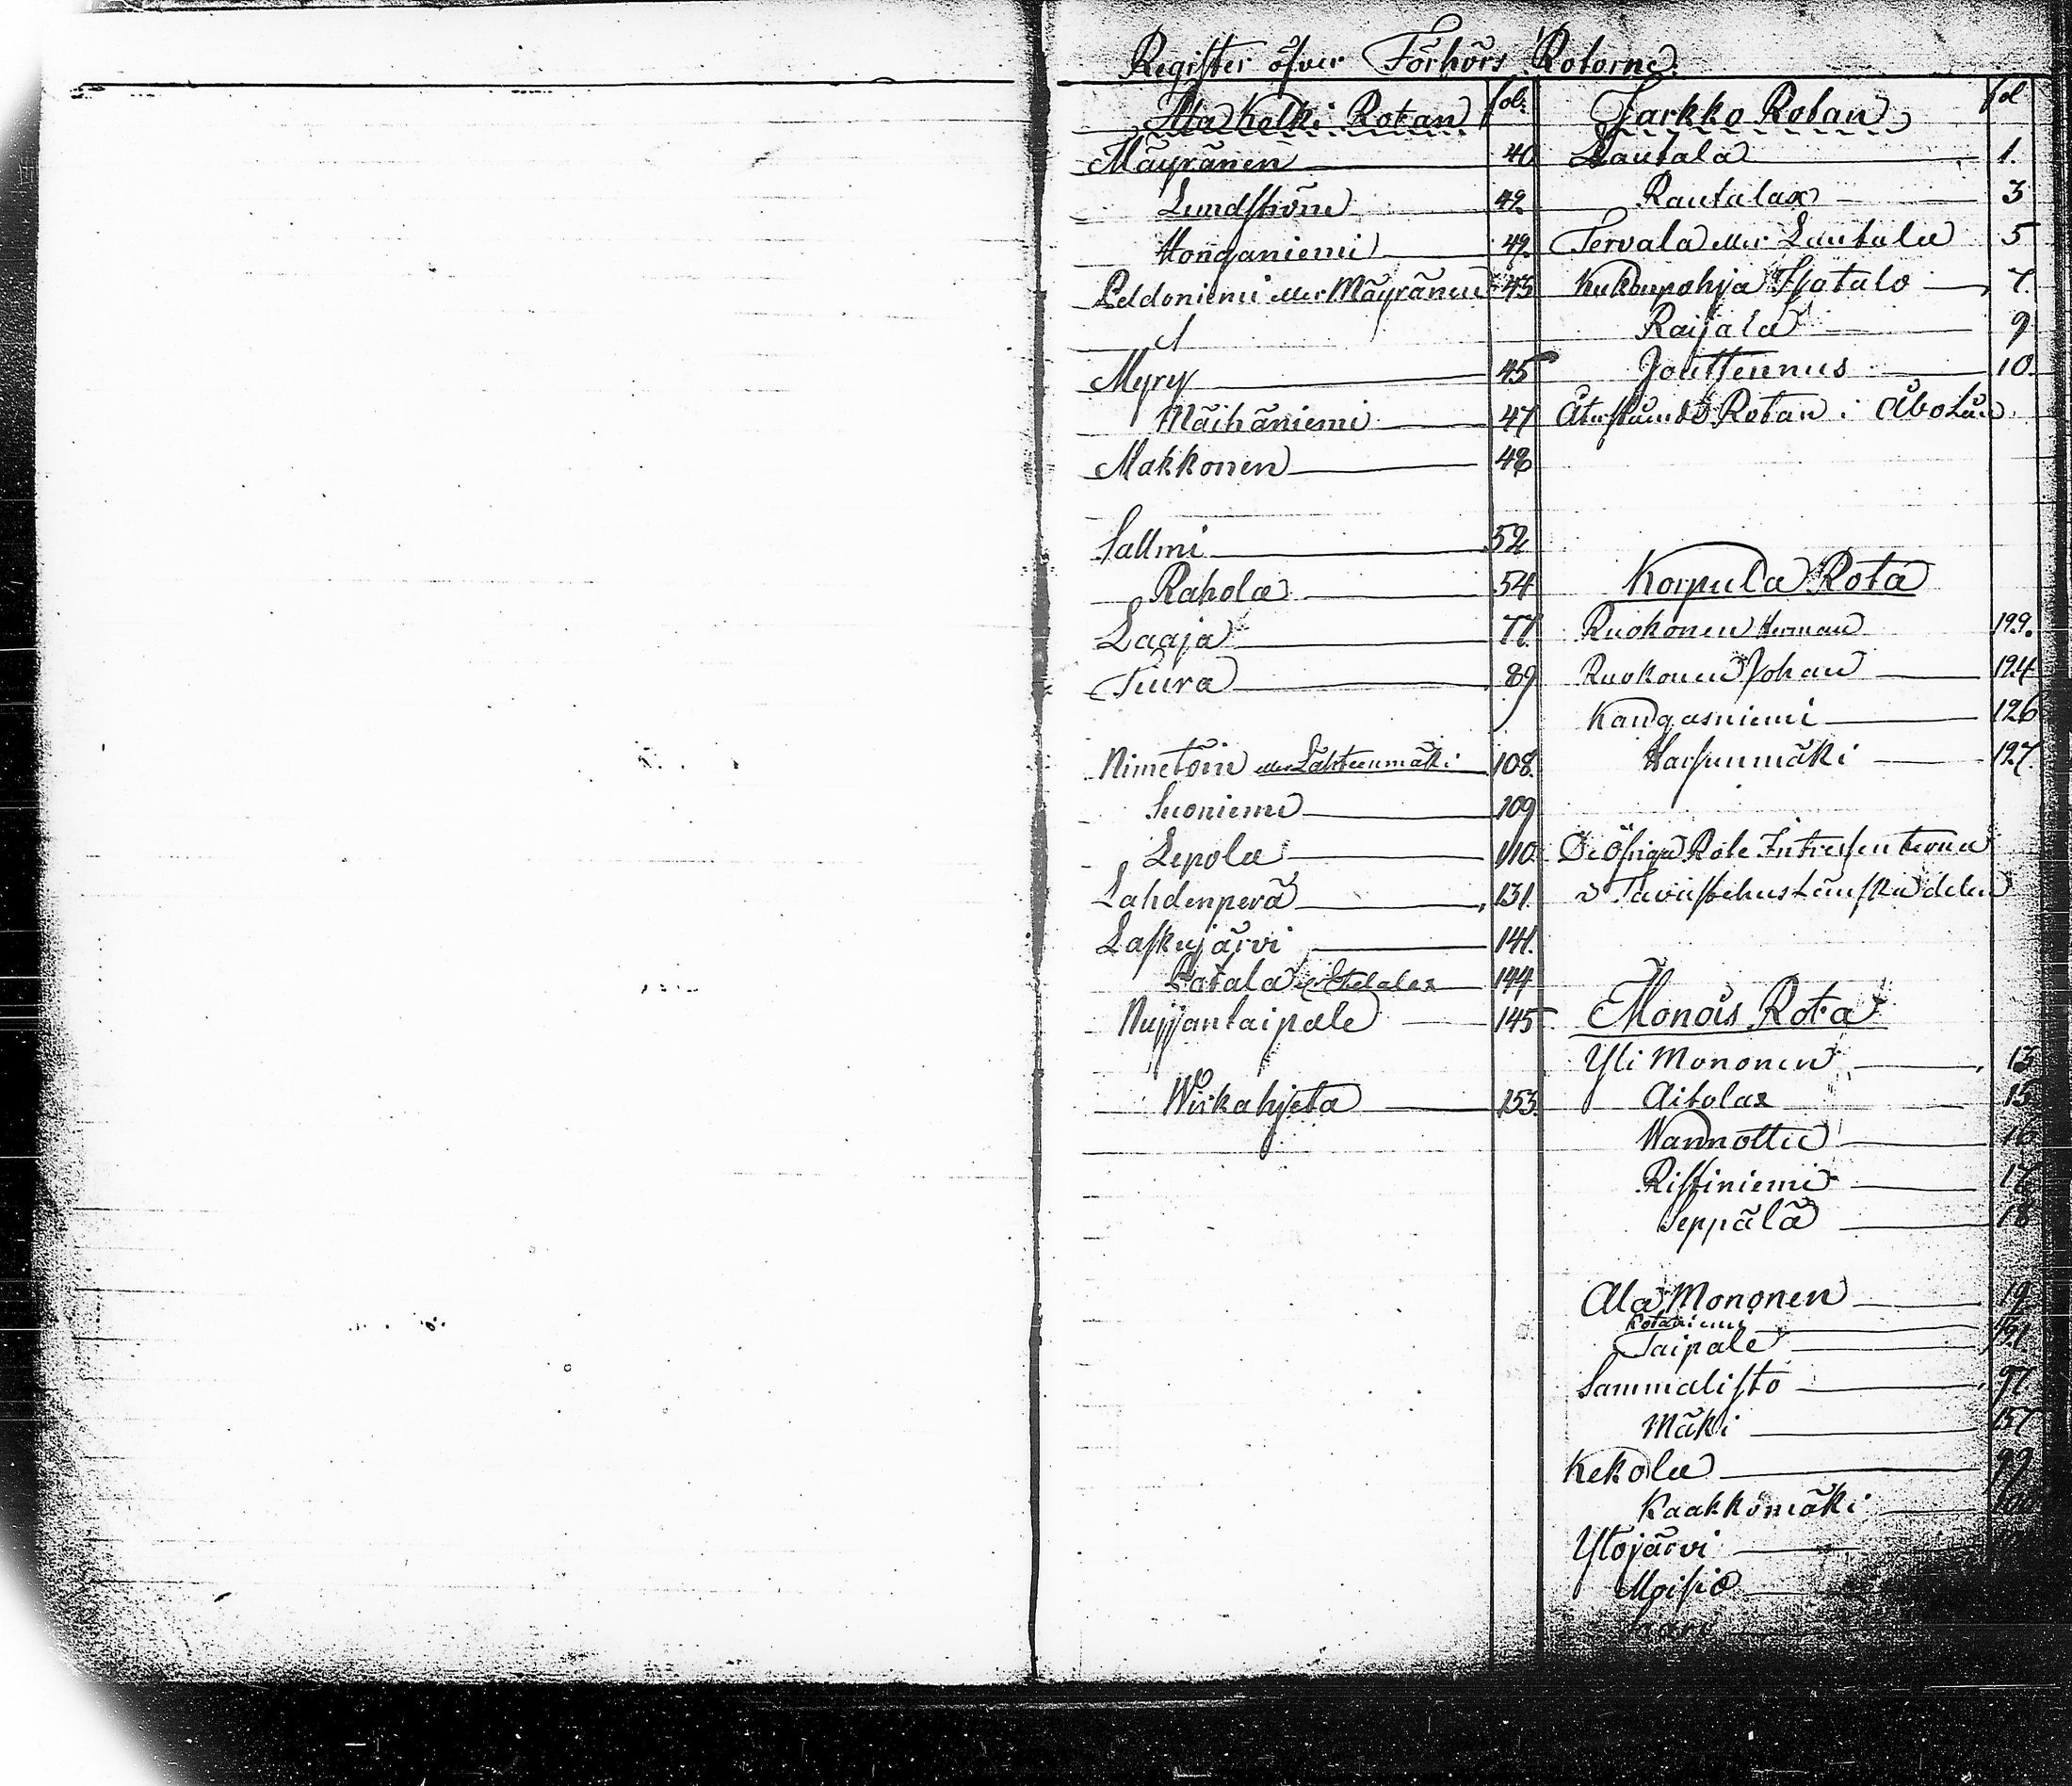 Register öfver Förhörs Rotorne.
Ala Kolki Rotan fol:
Mäyränen 40
Lundström 42.
Honganiemi 42.
Peldoniemi eller Mäyränen 43
Myry 45
Mäihäniemi 47
Makkonen 48
Sallmi 52
Rahola 54
Laaja 77.
Tiura 89
Nimetöin eller Lähteenmäki 108.
Suoniemi 109
Lepola 110.
Lahdenperä 131.
Laskujärvi 141.
Latala 144
Nujjantaipale 145
Wiskahjeta 153.
Jarkko Rotan fol
Lautala 1.
Rautalax 3
Tervala eller Lautala 5
Kukonpohja Isotalo 7.
Raijala 9
Jouttennus 10.
Återstående Rotan i Åbo Län
Korpula Rota
Ruokonen Herman 122.
Ruokonen Johan 124
Kangasniemi 126
Harsunmäki 127.
De öfriga Rote Intressenterna
i Tavastehus Länska delen
Monois Rota
Yli Mononen 13
Aitolax 15
Wannottu 16
Ristiniemi 17
Seppälä 18
Ala Mononen 19
Kotaniemi
Taipale 21
Sammalisto 97
Mäki 157
Kekola 99
Kaakkomäki
Ylöjärvi
Moisio